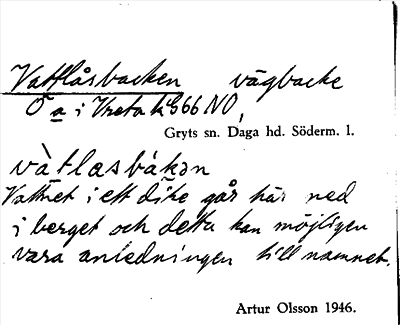 Vattlåsbacken vägbacke
Ö a i Vreta kS66 NO,
Gryts sn. Daga hd. Söderm. l.
vàtlasbákən
Vattnet i ett dike går här ned
i berget och detta kan möjligen
vara anledningen till namnet.
Artur Olsson 1946.